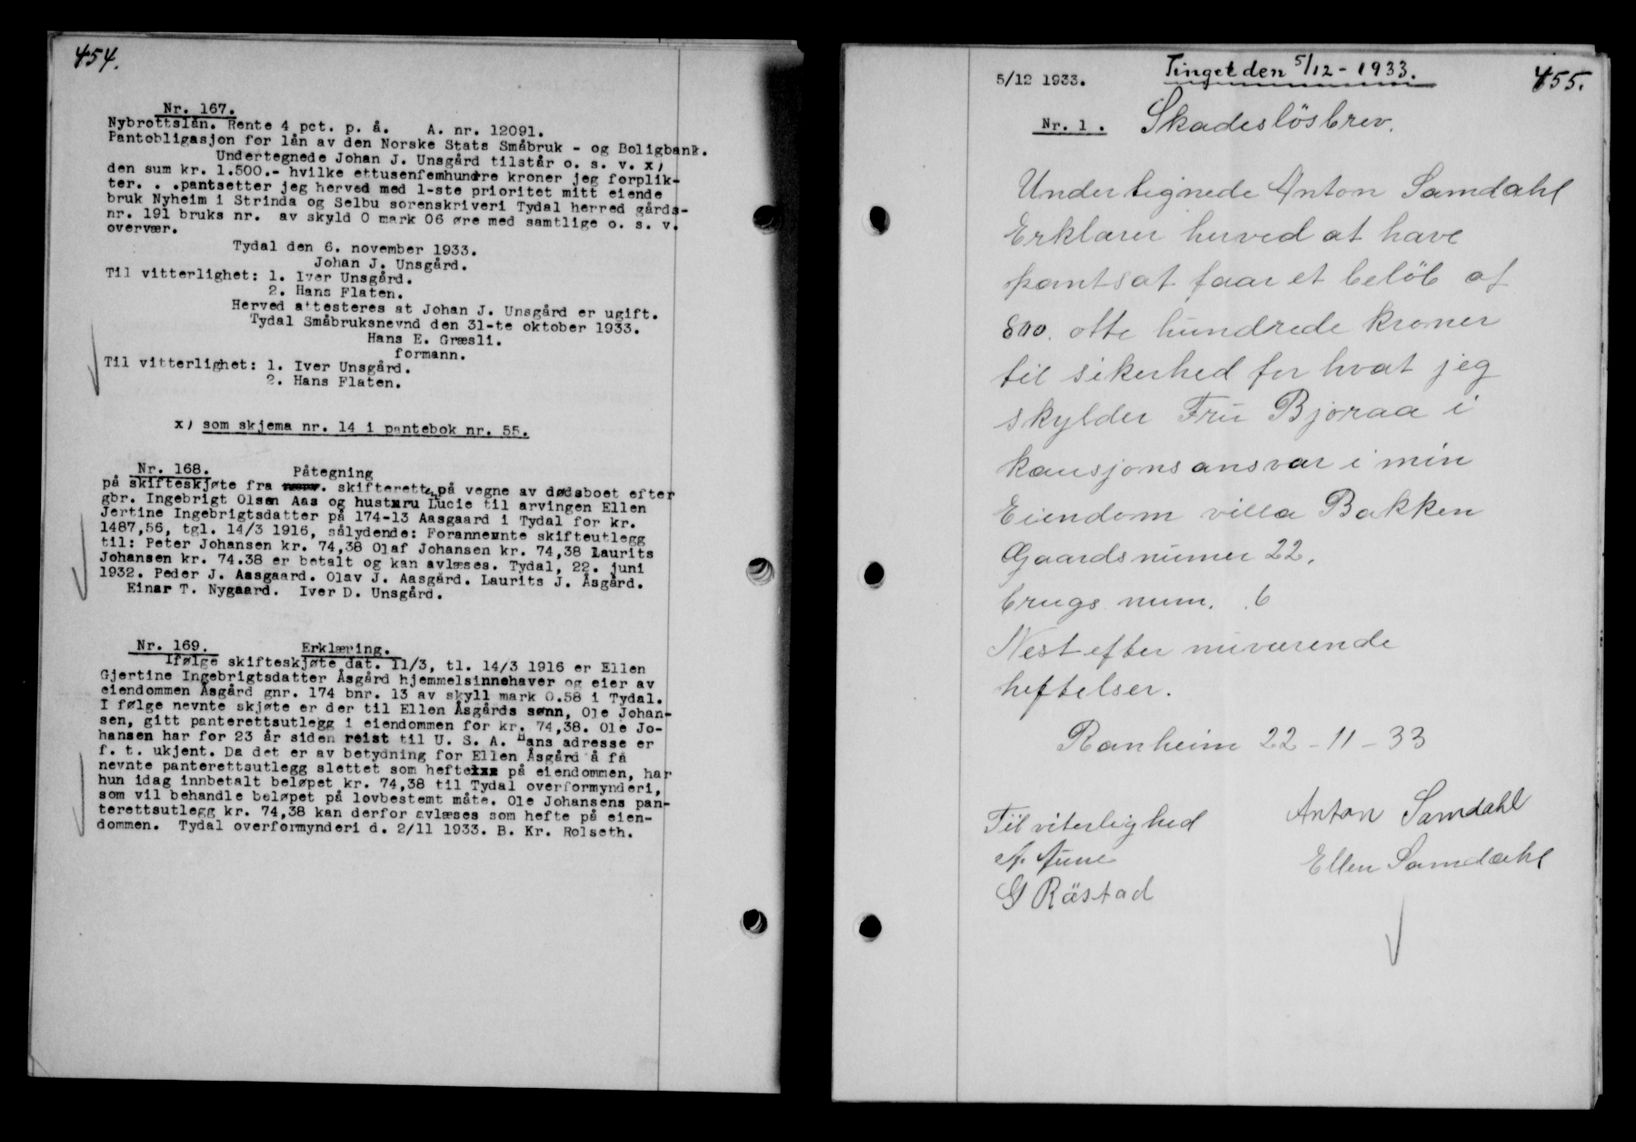 454.
Nr. 167.
Nybrottslån. Rente 4 pct. p. å. A. nr. 12091.
Pantobligasjon for lån av den Norske Stats Småbruk - og Boligbank.
Undertegnede Johan J. Unsgård tilstår o. s. v. x)
den sum kr. 1.500.- hvilke ettusenfemhundre kroner jeg forplik-
ter. . .pantsetter jeg herved med 1-ste prioritet mitt eiende
bruk Nyheim i Strinda og Selbu sorenskriveri Tydal herred gårds-
nr. 191 bruks nr. av skyld 0 mark 06 øre med samtlige o. s. v.
overvær.
Tydal den 6. november 1933.
Johan J. Unsgård.
Til vitterlighet: 1. Iver Unsgård.
2. Hans Flaten.
Herved attesteres at Johan J. Unsgård er ugift.
Tydal Småbruksnevnd den 31-te oktober 1933.
Hans E. Græsli.
formann.
Til vitterlighet: 1. Iver Unsgård.
2. Hans Flaten.
x) som skjema nr. 14 i pantebok nr. 55.
Nr. 168. Påtegning
på skifteskjøte fra skifteretten på vegne av dødsboet efter
gbr. Ingebrigt Olsen Aas og hustru Lucie til arvingen Ellen
Jertine Ingebrigtsdatter på 174-13 Aasgaard i Tydal for kr.
1487,56, tgl. 14/3 1916, sålydende: Forannevnte skifteutlegg
til: Peter Johansen kr. 74,38 Olaf Johansen kr. 74,38 Laurits
Johansen kr. 74.38 er betalt og kan avlæses. Tydal, 22. juni
1932. Peder J. Aasgaard. Olav J. Aasgård. Laurits J. Åsgård.
Einar T. Nygaard. Iver D. Unsgård.
Nr. 169. Erklæring.
Ifølge skifteskjøte dat. 11/3, tl. 14/3 1916 er Ellen
Gjertine Ingebrigtsdatter Åsgård hjemmelsinnehaver og eier av
eiendommen Åsgård gnr. 174 bnr. 13 av skyll mark 0.58 i Tydal.
I følge nevnte skjøte er der til Ellen Åsgårds sønn, Ole Johan-
sen, gitt panterettsutlegg i eiendommen for kr. 74,38. Ole Jo-
hansen har for 23 år siden reist til U. S. A. Hans adresse er
f. t. ukjent. Da det er av betydning for Ellen Åsgård å få
nevnte panterettsutlegg slettet som hefte på eiendommen, har
hun idag innbetalt beløpet kr. 74,38 til Tydal overformynderi,
som vil behandle beløpet på lovbestemt måte. Ole Johansens pan-
terettsutlegg kr. 74,38 kan derfor avlæses som hefte på eien-
dommen. Tydal overformynderi d. 2/11 1933. B. Kr. Rolseth.
5/12 1933. Tinget den 5/12 - 1933. 455.
Nr. 1. Skadesløsbrev.
Undertegnede Anton Samdahl
Erklærer herved at have
pantsat faar et beløb af
800. otte hundrede kroner
til sikerhed for hvat jeg
skylder Fru Bjøraa i
kausjonsansvar i min
Eiendom villa Bakken
Gaardsnumer 22.
brugs num. 6
Nest efter nuværende
heftelser.
Ranheim 22 - 11 - 33
Til viterlighed Anton Samdahl
Aune Ellen Samdahl
G Råstad